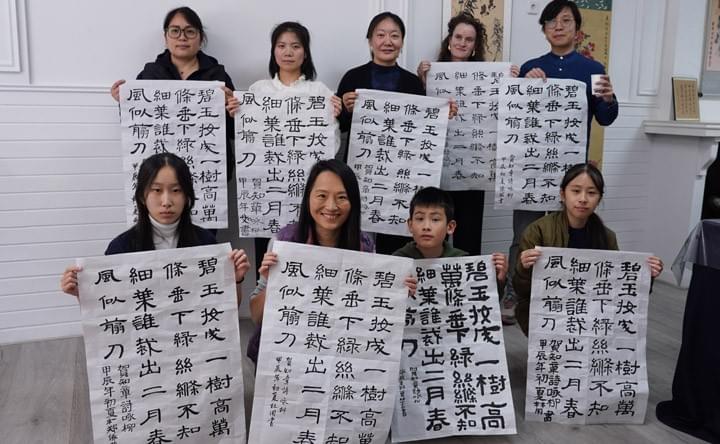 碧玉妝成一樹高萬
條垂下綠絲縧不知
細葉誰裁出二月春
風似翦刀
碧玉妝成一樹高萬
條垂下綠絲縧不知
細葉誰裁出二月春
風似翦刀
賀知章詩詠柳
甲辰年
碧玉妝成一樹高萬
條垂下綠絲縧不知
細葉誰裁出二月春
風似翦刀
碧玉妝成一樹高萬
條垂下綠絲縧不知
細葉誰裁出二月春
風似翦刀
碧玉妝成一樹高萬
條垂下綠絲縧不知
細葉誰裁出二月春
風似翦刀
賀知章詩詠柳
碧玉妝成一樹高萬
條垂下綠絲縧不知
細葉誰裁出二月春
風似翦刀
賀知章詩詠柳
甲辰年初夏
碧玉妝成一樹高萬
條垂下綠絲縧不知
細葉誰裁出二月春
風似翦刀
賀知章詩詠柳
甲辰年初夏
碧玉妝成一樹高
萬條垂下綠絲縧不知
細葉誰裁出二月春
風似翦刀
碧玉妝成一樹高萬
條垂下綠絲縧不知
細葉誰裁出二月春
風似翦刀
賀知章詩詠柳
甲辰年初夏